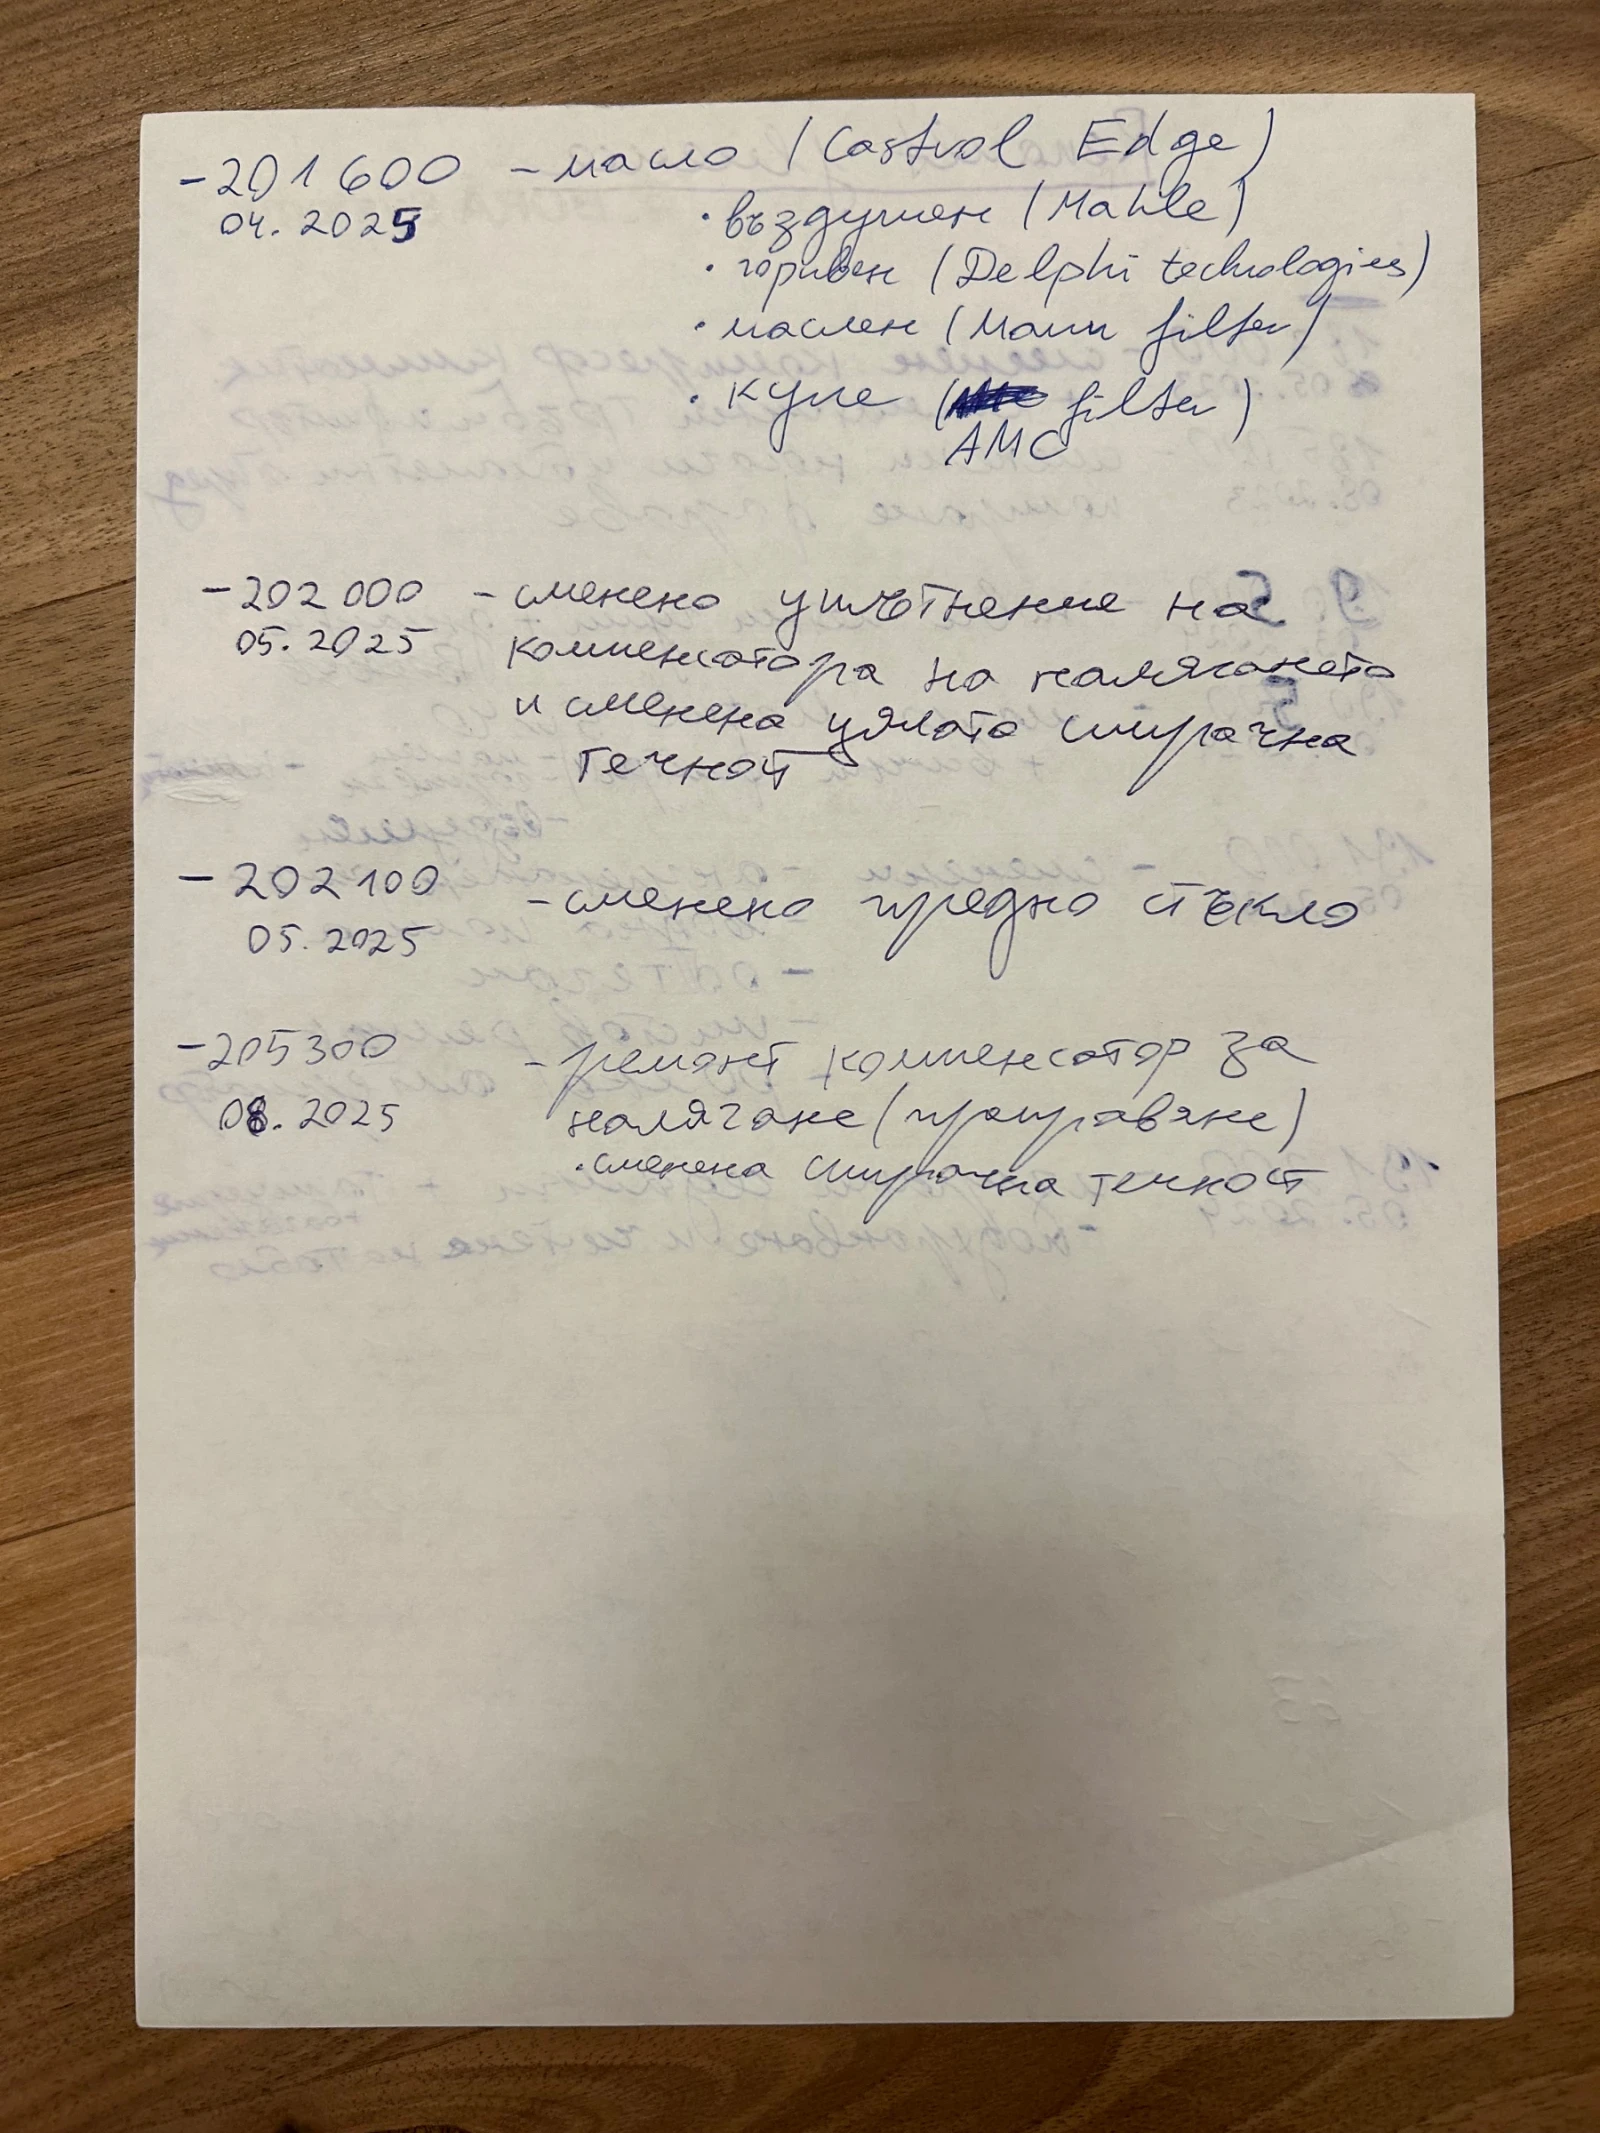 - 201 600 - масло (Castrol Edge)
04. 2025 · въздушен (Mahle)
· горивен (Delphi technologies)
· маслен (Mann filter)
· купе ( filter)
АМС
- 202 000 - сменено уплътнение на
05. 2025 компенсатора на налягането
и сменена цялата спирачна
течност
- 202 100 - сменено предно стъкло
05. 2025
- 205 300 - ремонт компенсатор за
08. 2025 налягане (проправяне)
· сменена спирачна течност